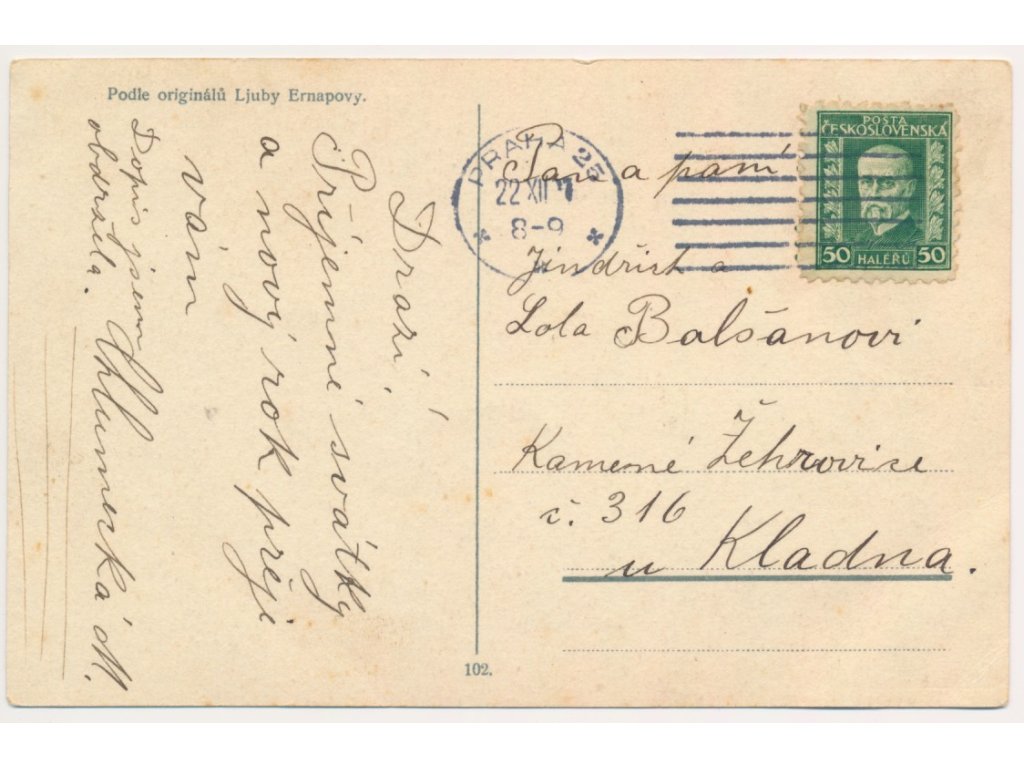 Podle originálů Ljuby Ernapovy.
Drazí!
Příjemné svátky
a nový rok přeji
vám
Chlumecká M.
Dopis jsem
obdržela.
PRAHA 25
22 XII 7
8-9
POŠTA
ČESKOSLOVENSKÁ
50 HALÉŘŮ 50
Pan a paní
Jindřich a
Lola Balšánovi
Kamenné Žehrovice
č. 316
u Kladna.
102.